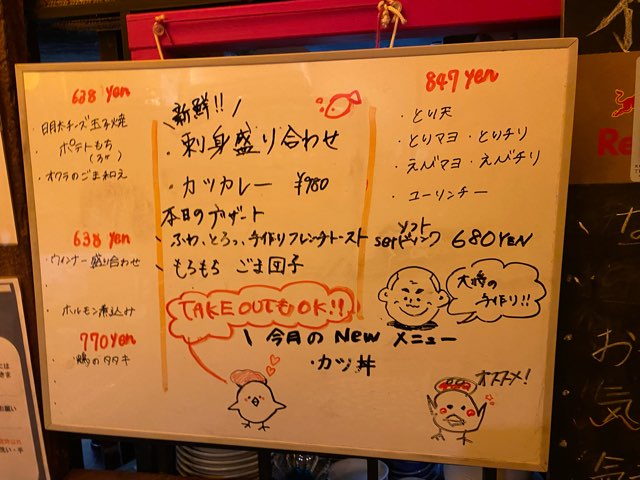 628 yen
・明太チーズ玉子焼
・ポテトもち
(3ヶ)
・オクラのごま和え
638 yen
・ウィンナー盛り合わせ
・ホルモン煮込み
770yen
・鶏のタタキ
\新鮮!!/
・刺身盛り合わせ
・カツカレー ¥980
本日のデザート
ふわ、とろっ、手作りフレンチトースト
もちもち ごま団子
ソフト
setドリンク 680YEN
TAKE OUTもOK!!
\今月の New メニュー
・カツ丼
847 yen
・とり天
・とりマヨ・とりチリ
・えびマヨ・えびチリ
・ユーリンチー
大将の
手作り!!
オススメ!
Re
お
気